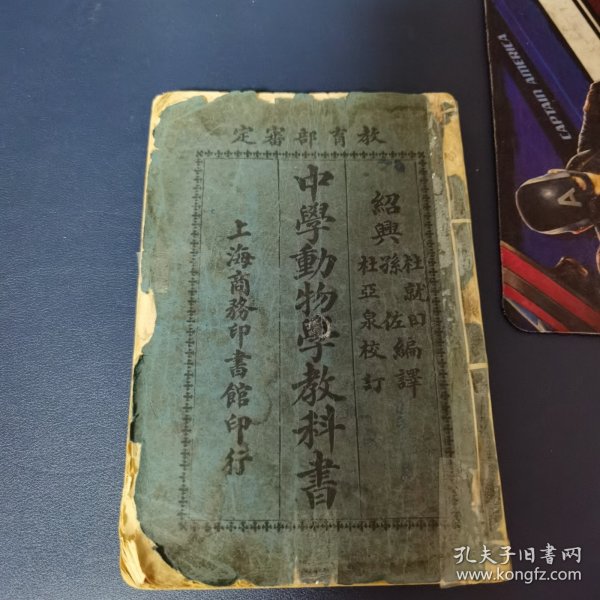 教育部審定
紹興
杜就田
孫佐
編譯
杜亞泉校訂
中學動物學教科書
上海商務印書館印行
CAPTAIN AMERICA
A
孔夫子旧书网
www.kongfz.com